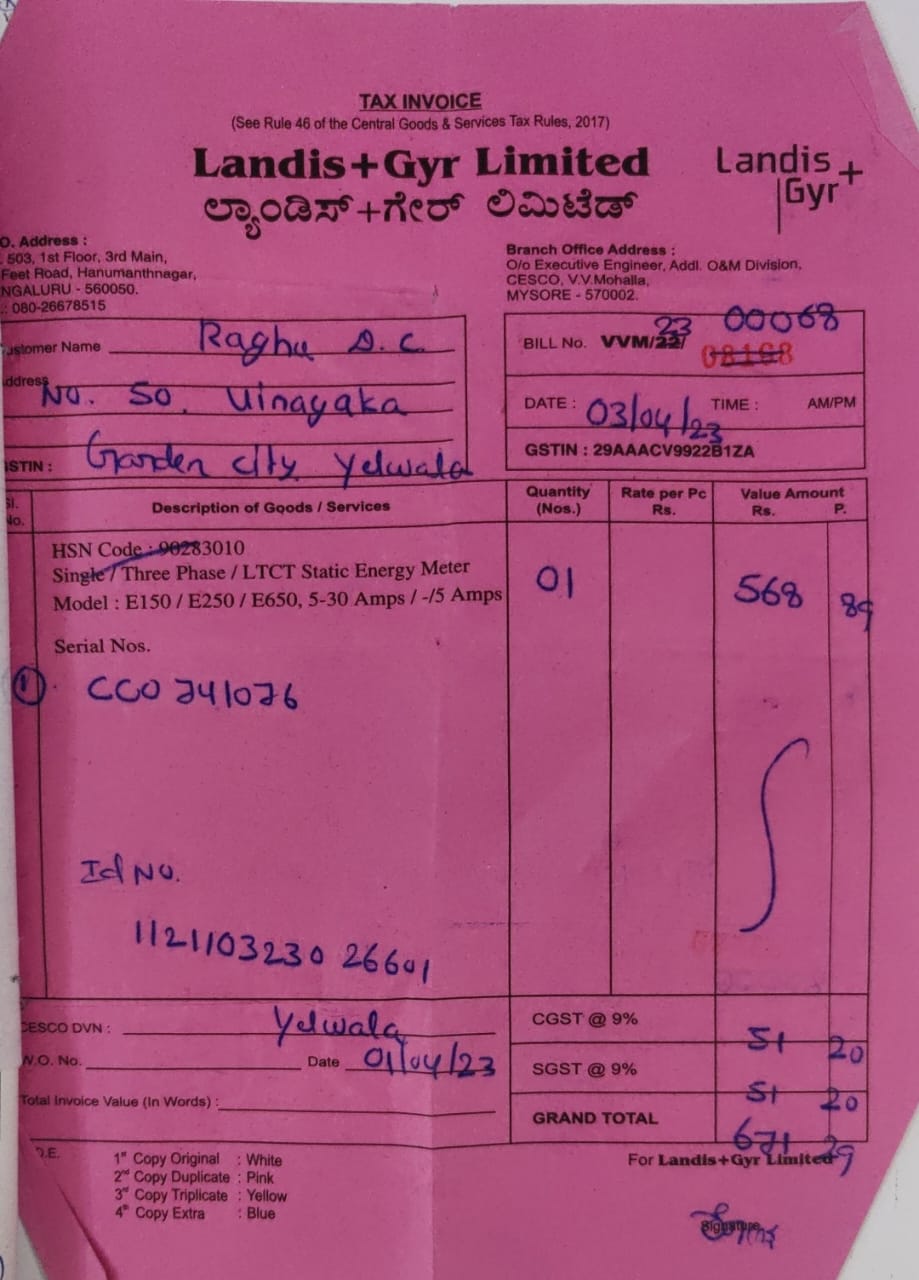 TAX INVOICE
(See Rule 46 of the Central Goods & Services Tax Rules, 2017)
Landis+Gyr Limited
ಲ್ಯಾಂಡಿಸ್+ಗೇರ್ ಲಿಮಿಟೆಡ್
Landis+
Gyr
O. Address :
503, 1st Floor, 3rd Main,
Feet Road, Hanumanthnagar,
NGALURU - 560050.
.: 080-26678515
Branch Office Address :
O/o Executive Engineer, Addl. O&M Division,
CESCO, V.V.Mohalla,
MYSORE - 570002.
ustomer Name Raghu D.C.
ddress No. 50, Vinayaka
STIN : Garden city Yelwala
BILL No. VVM/22/ 23 00068
08168
DATE : 03/04/23 TIME : AM/PM
GSTIN : 29AAACV9922B1ZA
Sl. No. Description of Goods / Services Quantity (Nos.) Rate per Pc Rs. Value Amount Rs. P.
HSN Code : 90283010
Single / Three Phase / LTCT Static Energy Meter 01 568 89
Model : E150 / E250 / E650, 5-30 Amps / -/5 Amps
Serial Nos.
1 CCO741076
Id No.
1121103230 26601
CESCO DVN : Yelwala
W.O. No. Date 01/04/23
Total Invoice Value (In Words) :
CGST @ 9% 51 20
SGST @ 9% 51 20
GRAND TOTAL 671 29
D.E.
1st Copy Original : White
2nd Copy Duplicate : Pink
3rd Copy Triplicate : Yellow
4th Copy Extra : Blue
For Landis+Gyr Limited
Signature